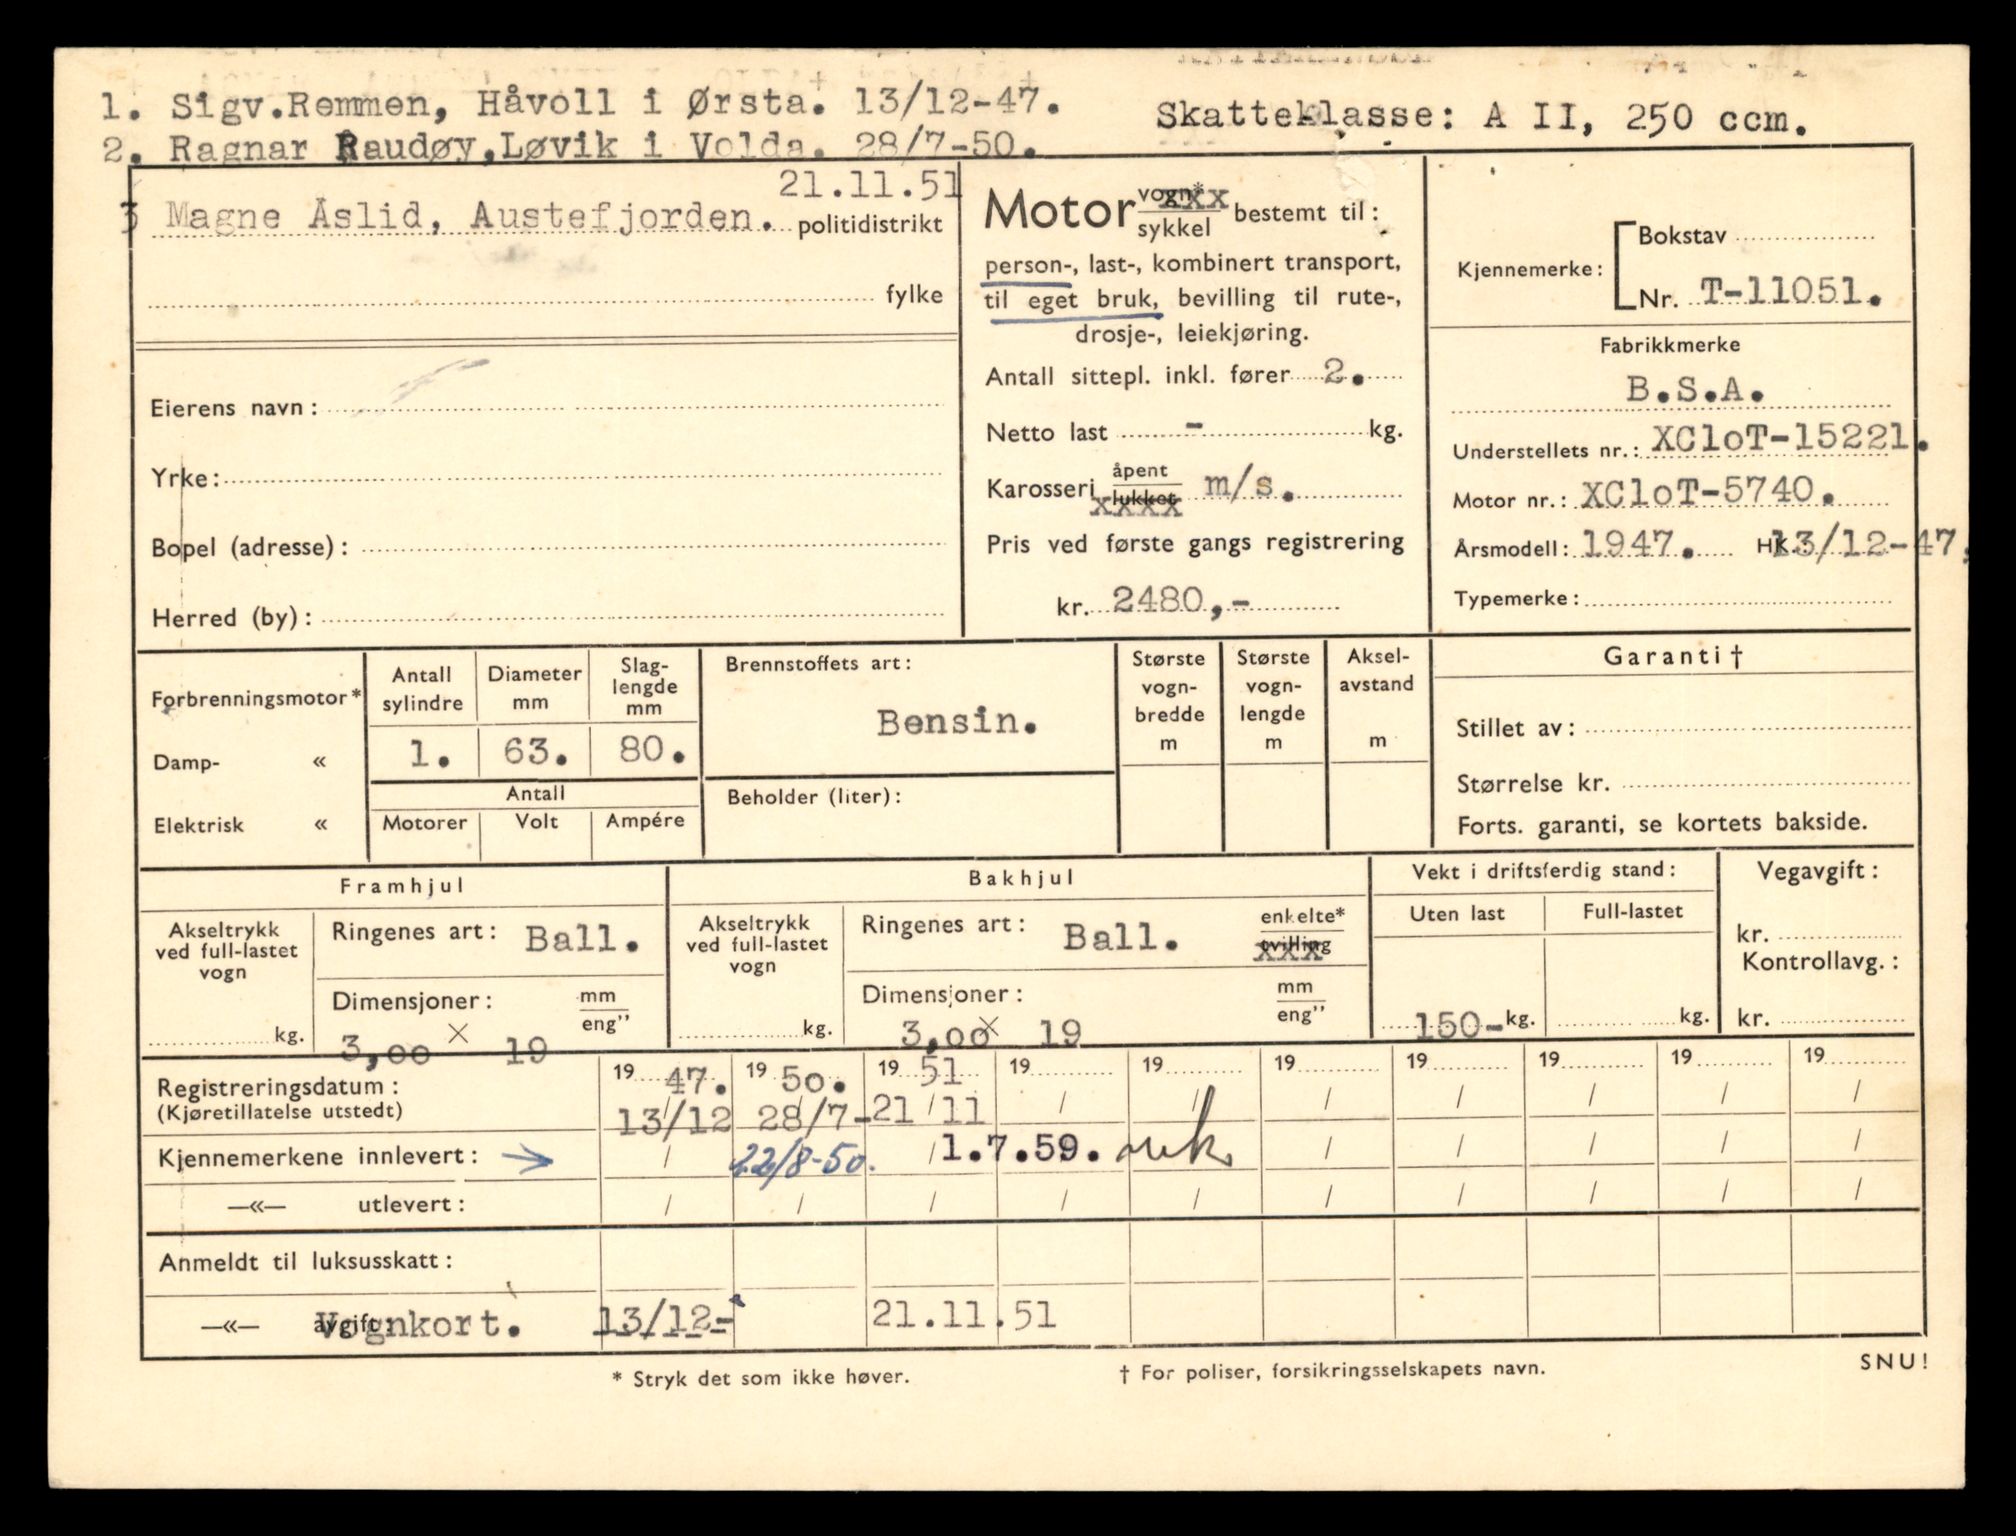 1. Sigv.Remmen, Håvoll i Ørsta. 13/12-47.
Skatteklasse: A II, 250 ccm.
2. Ragnar Raudøy,Løvik i Volda. 28/7-50.
21.11.51
3 Magne Åslid, Austefjorden. politidistrikt
fylke
Eierens navn:
Yrke:
Bopel (adresse):
Herred (by):
Motor vogn* xxx
sykkel bestemt til:
person-, last-, kombinert transport,
til eget bruk, bevilling til rute-,
drosje-, leiekjøring.
Antall sittepl. inkl. fører 2.
Netto last - kg.
Karosseri åpent
lukket xxxx m/s.
Pris ved første gangs registrering
kr. 2480,-
Kjennemerke:
Bokstav
Nr. T-11051.
Fabrikkmerke
B.S.A.
Understellets nr.: XCloT-15221.
Motor nr.: XCloT-5740.
Årsmodell: 1947. HK. 13/12-47.
Typemerke:
Forbrenningsmotor*
Damp- «
Elektrisk «
Antall
sylindre
1.
Diameter
mm
63.
Slag-
lengde
mm
80.
Antall
Motorer Volt Ampére
Brennstoffets art:
Bensin.
Beholder (liter):
Største
vogn-
bredde
m
Største
vogn-
lengde
m
Aksel-
avstand
m
Garanti †
Stillet av:
Størrelse kr.
Forts. garanti, se kortets bakside.
Framhjul
Akseltrykk
ved full-lastet
vogn
kg.
Ringenes art: Ball.
Dimensjoner: mm
eng"
3,oo × 19
Bakhjul
Akseltrykk
ved full-lastet
vogn
kg.
Ringenes art: Ball.
enkelte*
tvilling xxx
Dimensjoner: mm
eng"
3,oo × 19
Vekt i driftsferdig stand:
Uten last Full-lastet
150- kg. kg.
Vegavgift:
kr.
Kontrollavg.:
kr.
19 47. 19 50. 19 51 19 19 19 19 19 19 19
Registreringsdatum:
(Kjøretillatelse utstedt) 13/12 28/7- 21/11 / / / / / / /
Kjennemerkene innlevert: → / 22/8-50. / 1.7.59. / / / / /
—«— utlevert: / / / / / / / / / /
Anmeldt til luksusskatt:
—«— avgift: Vognkort. 13/12- 21.11.51
* Stryk det som ikke høver.
† For poliser, forsikringsselskapets navn.
SNU!